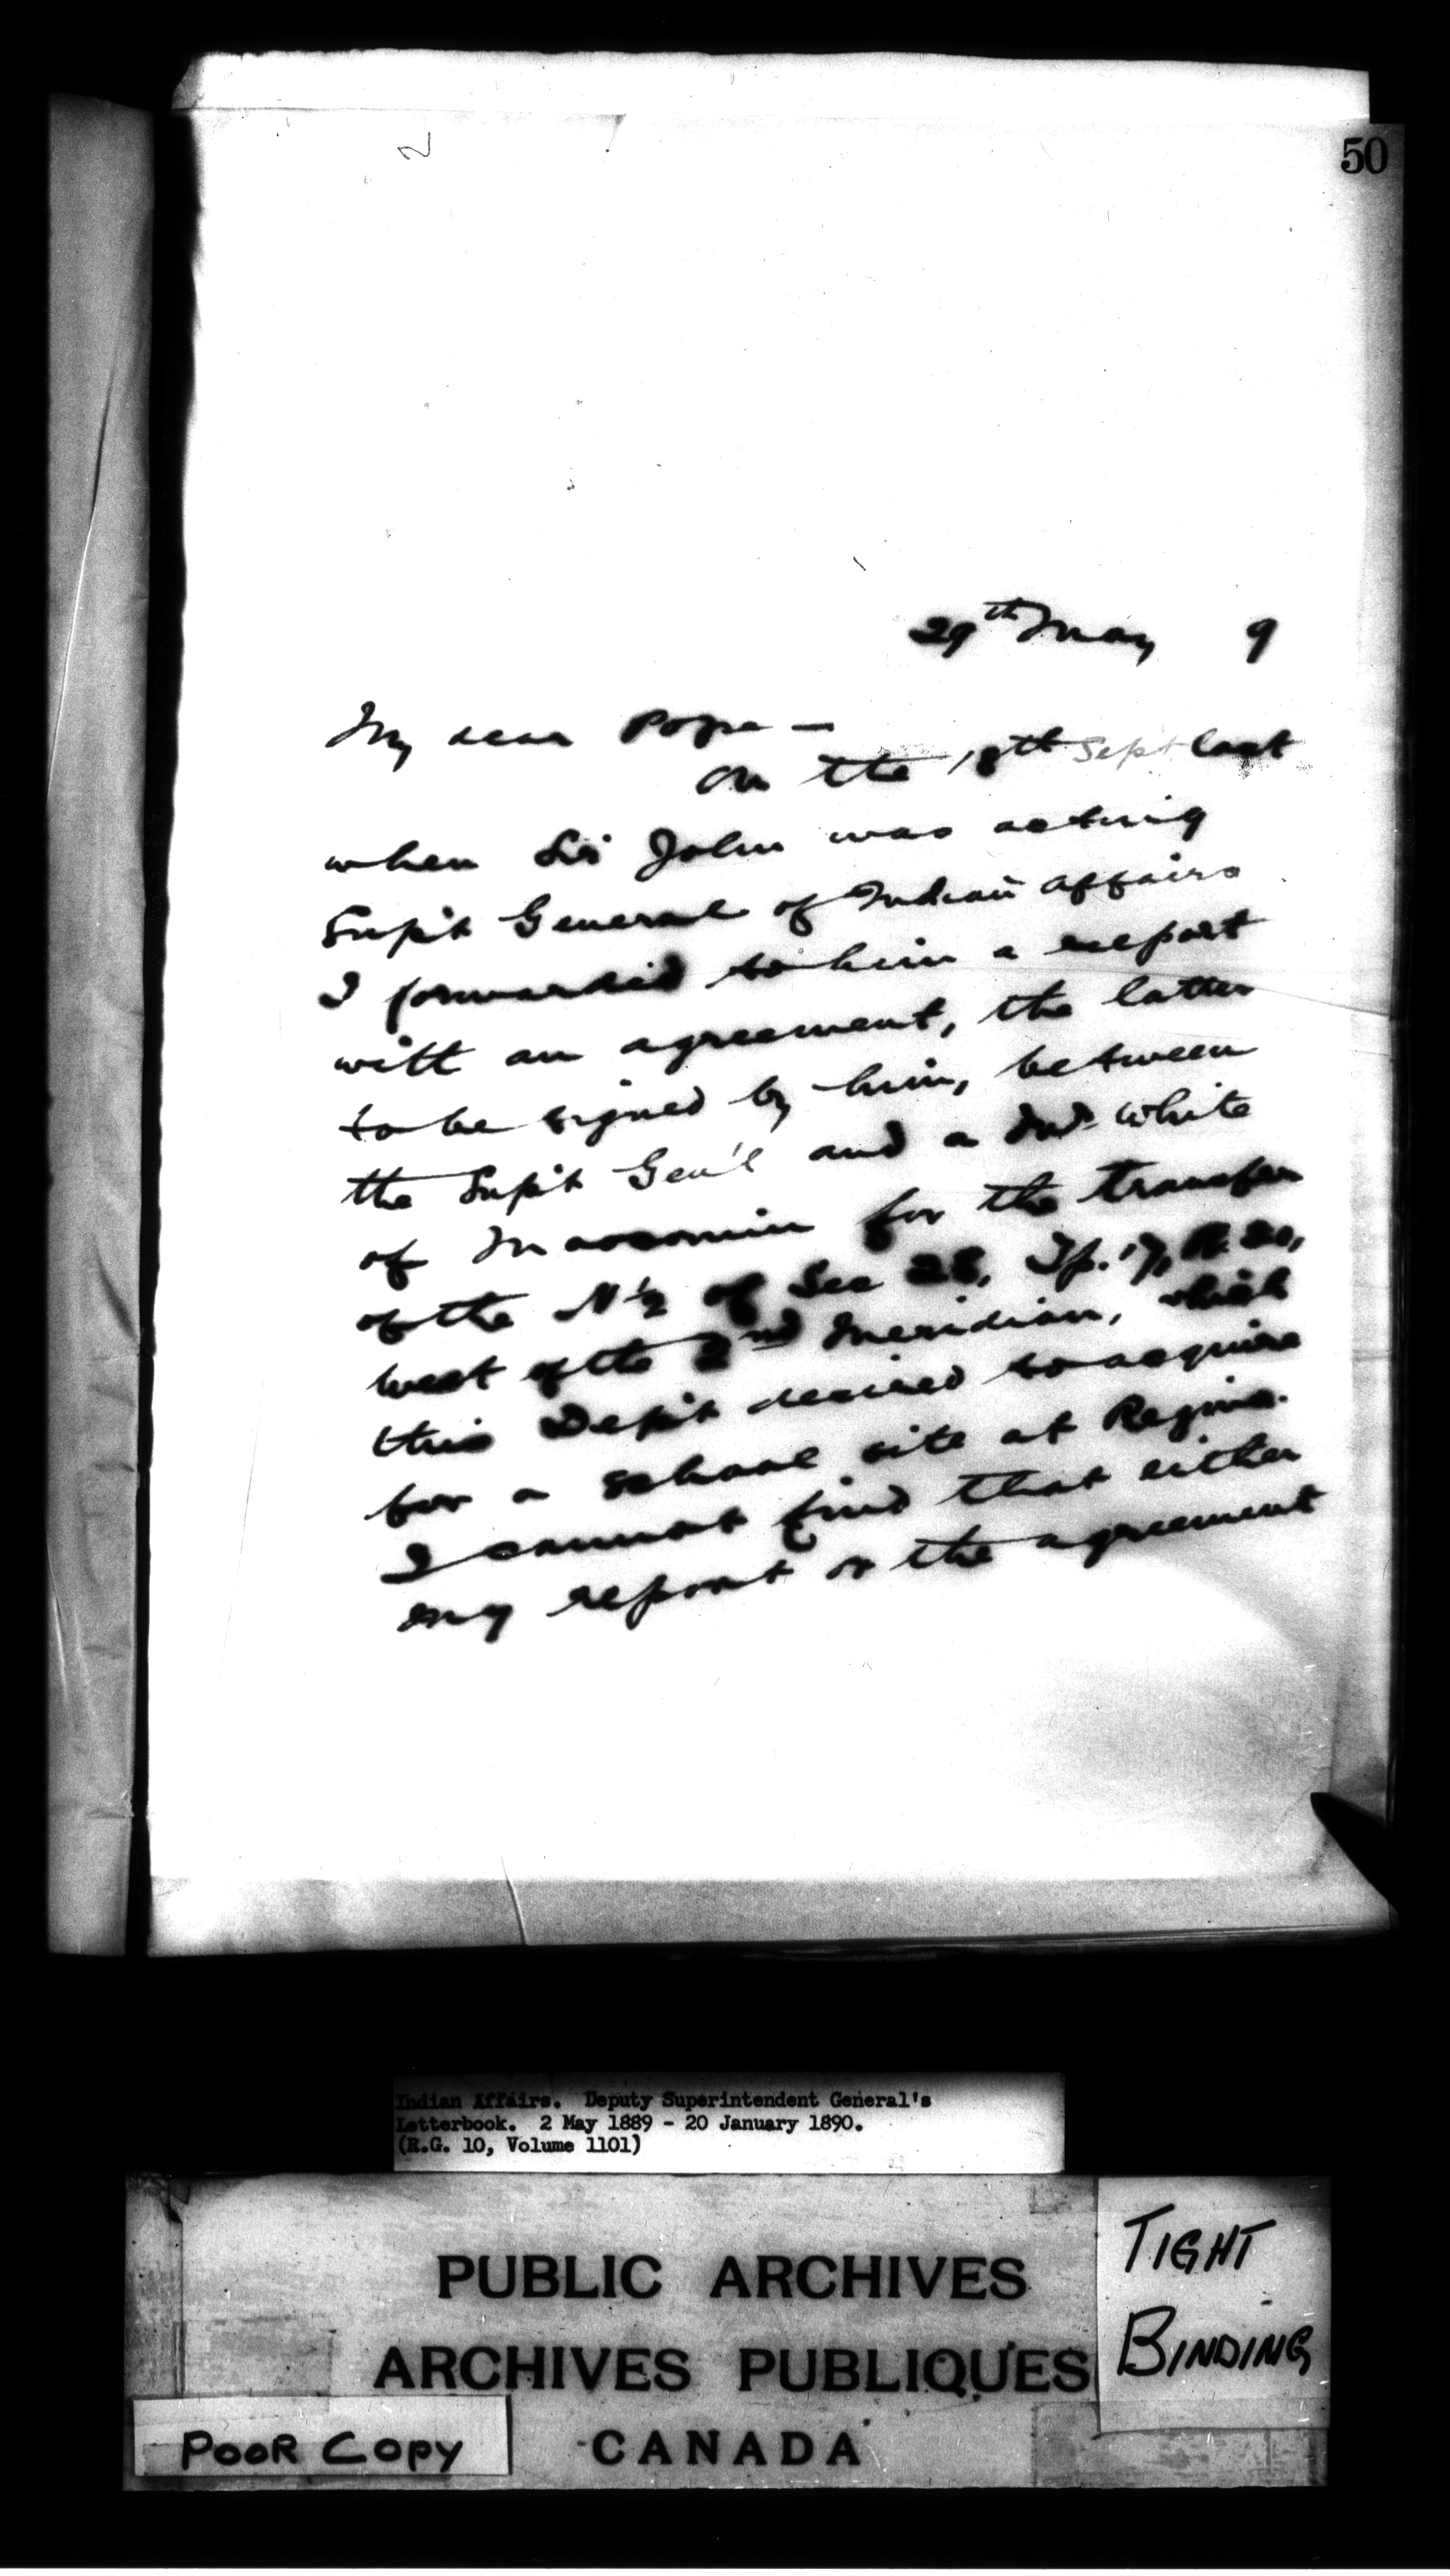 2
50
29th May 9
My dear Pope —
On the 18th Sept last
when Sir John was acting
Sup't General of Indian Affairs
I forwarded to him a report
with an agreement, the latter
to be signed by him, between
the Sup't Gen'l and a White
of Moosomin for the transfer
of the N ½ of Sec 28, Tp. 17, R. 20,
west of the 2nd Meridian, which
this Dep't desired to acquire
for a school site at Regina.
I cannot find that either
my report or the agreement
Indian Affairs. Deputy Superintendent General's
Letterbook. 2 May 1889 - 20 January 1890.
(R.G. 10, Volume 1101)
PUBLIC ARCHIVES
ARCHIVES PUBLIQUES
CANADA
TIGHT
BINDING
POOR COPY